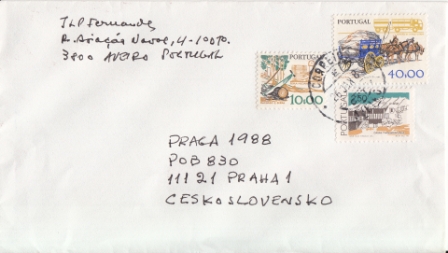 J L P Fernandes
R. Aviação Naval, 4-1º DTO.
3800 AVEIRO PORTUGAL
PORTUGAL
40.00
PORTUGAL
10.00
CORREIOS
PORTUGAL
PRAGA 1988
POB 830
111 21 PRAHA 1
ČESKOSLOVENSKO